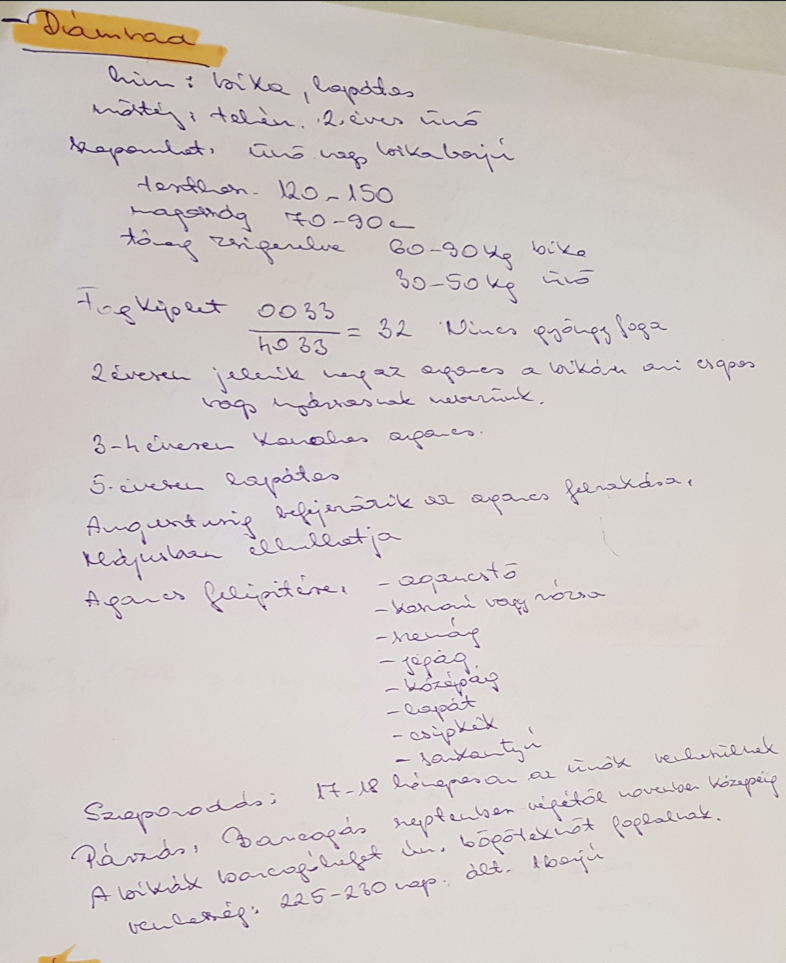 - Dámvad
hím: bika, lapátos
nőstény: tehén. 2. éves ünő
szaporulat: ünő vagy bikaborjú
testhossz. 120-150
magasság 70-90cm
tömeg zsigerelve 60-90kg bika
30-50kg ünő
Fogképlet 0033
4033 = 32 Nincs gyöngyfoga
2 évesen jelenik meg az agancs a bikán ami csapos
vagy nyársasnak nevezünk.
3-4 évesen kanalas agancs.
5. évesen lapátos
Augusztusig befejeződik az agancs felrakása,
Májusban elhullatja
Agancs felépítése, - agancstő
- koszorú vagy rózsa
- szemág
- jégág
- középág
- lapát
- csipkék
- sarkantyú
Szaporodás: 17-18 hónaposan az ünők vemhesülnek
Párzás, Barcogás szeptember végétől november közepéig
A bikák barcogóhelyet ún. bögőteknőt foglalnak.
vemhesség: 225-230 nap. ált. 1 borjú